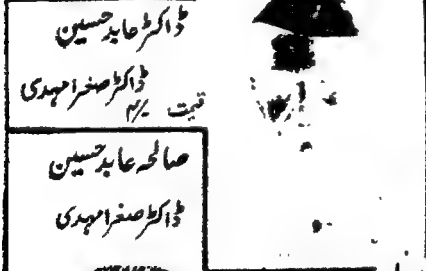 ڈاکٹر عابد حسین
ڈاکٹر صغرا مہدی
قیمت ۴/-
صالحہ عابد حسین
ڈاکٹر صغرا مہدی